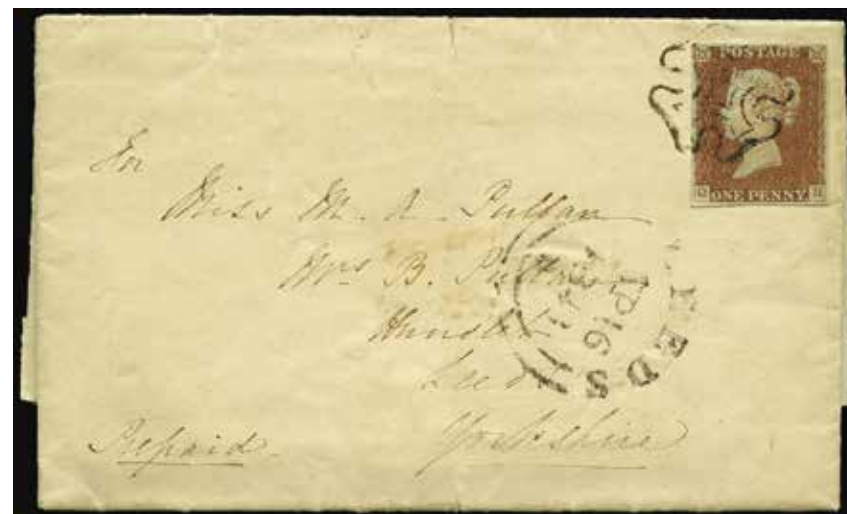 POSTAGE
ONE PENNY
For
Miss M. A. Pullan
Mrs B. Pullan
Hunslet
Leeds
Yorkshire
Prepaid
LEEDS
16